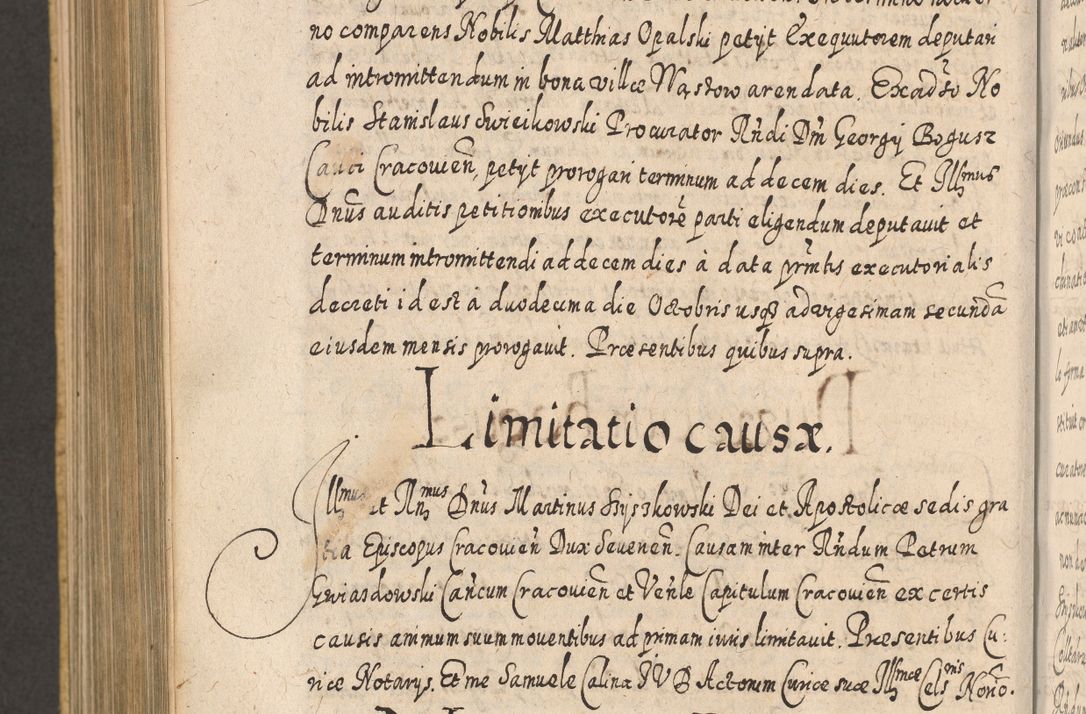 no comparens Nobilis Matthias Opalski petyt Exequutorem deputari
ad intromittendum in bona villæ Wąsłow arendata. Exadso No
bilis Stanislaus Swieikowski Procurator Rńdi Dńi Georgij Bogusz
Canci Cracovień, petyt prorogari terminum ad decem dies. Et Illmus
Dnūs auditis petitionibus executorē parti eligendum deputavit et
terminum intromittendi ad decem dies à data prńtis executorialis
decreti id est à duodecima die Octobris usq3 ad vigesimam secundā
eiusdem mensis prorogavit. Præsentibus quibus supra.
Limitatio causæ.
Illmus et Rńmus Dńus Martinus Szyszkowski Dei et Apostolicæ sedis gra
tia Episcopus Cracovień Dux Severień. Causam inter Rńdum Petrum
Gwiasdowski Cańcum Cracovień et Veńle Capitulum Cracovień ex certis
causis animum suum moventibus ad primam iuris limitavit. Præsentibus Cu:
riæ Notarys. Et me Samuele Calina JUD Actorum Curiæ suæ Illmæ Celsnis Norio.